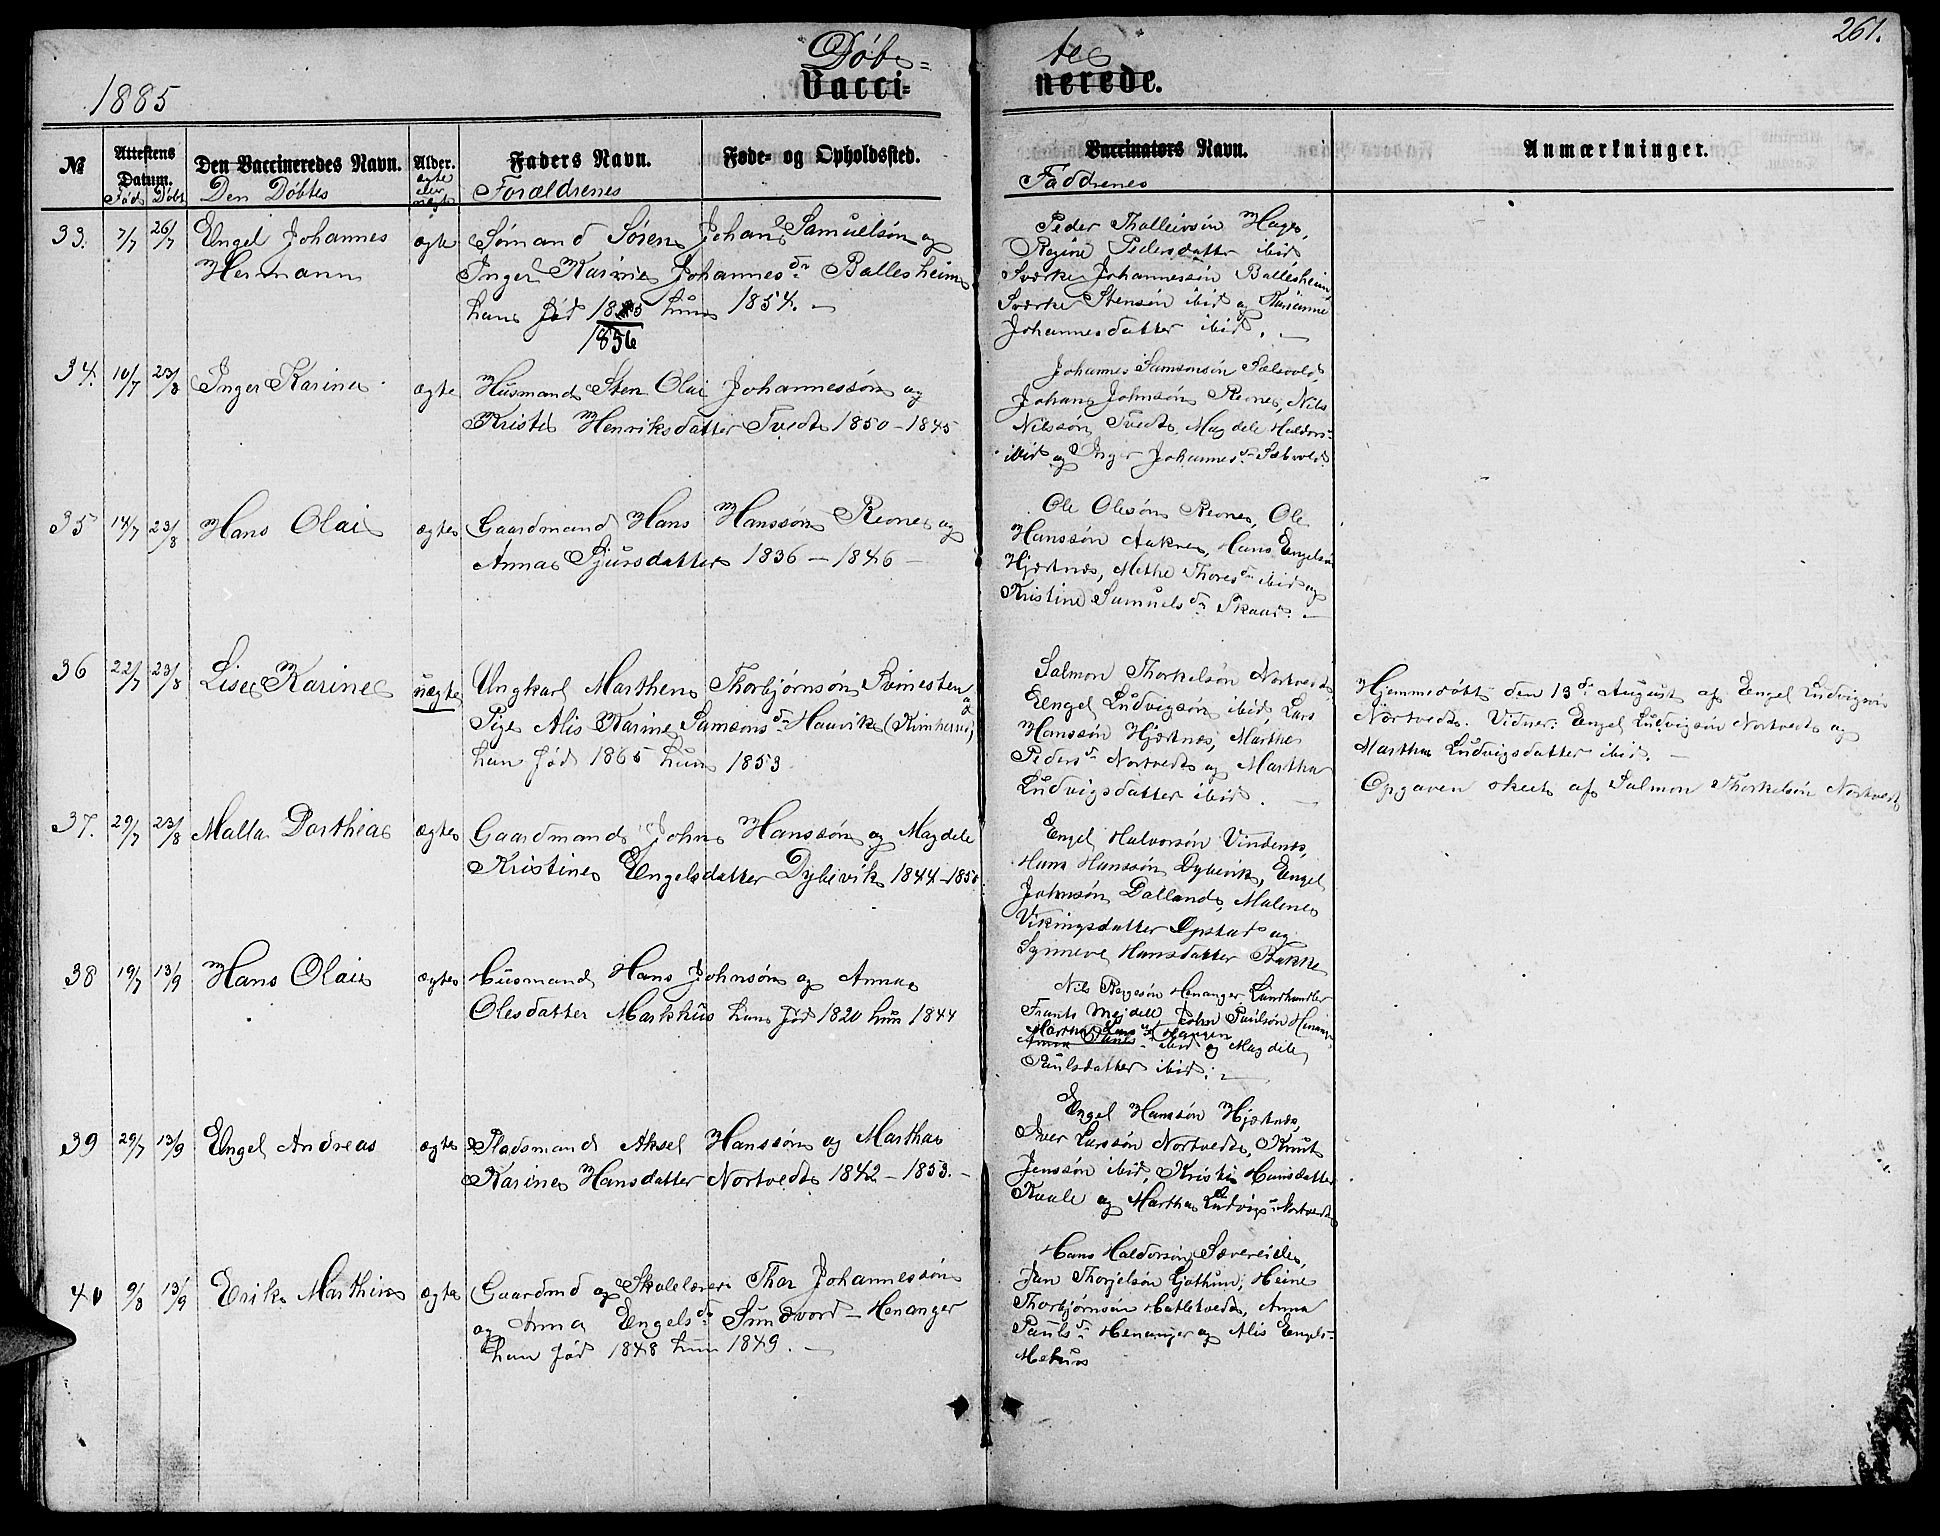 261.
1885
Døb= tes
Vacci= nerede.
№
Attestens Datum.
Født Døbt
Den Vaccineredes Navn.
Den Døbtes
Alder.
ægte eller uægte
Faders Navn.
Forældrenes
Føde- og Opholdssted.
Vaccinators Navn.
Faddrenes
Anmærkninger.
33. 7/7 26/7 Engel Johannes ægte Sømand Søren Johan Samuelsøn og
Hermann Inger Karine Johannesdr Ballesheim
han født 1855 hun 1854. –
1856
Peder Thalleivsøn Hage,
Regine Pedersdatter ibid
Sværke Johannessøn Ballesheim
Sværke Stensøn ibid og Marianne
Johannesdatter ibid. –
34. 10/7 23/8 Inger Karine ægte Husmand Sten Olai Johannessøn og
Kristi Henriksdatter Tvedt 1850 – 1845
Johannes Samsonsøn Sælsvold,
Johan Johnsøn Reone, Nils
Nilssøn Tvedt, Magdele Haldors-
ibid og Inger Johannesdr Sælsvold.
35 14/7 23/8 Hans Olai ægte Gaardmand Hans Hanssøn Reone og
Anna Sjursdatter 1836 – 1846 –
Ole Olesøn Reone, Ole
Hanssøn Aakre, Hans Engelsøn
Hjærtnæs, Methe Thoresdr ibid og
Kristine Samuelsdr Skaar. –
36 22/7 23/8 Lise Karine uægte Ungkarl Marthen Thorbjørnsøn Svinesten og
Pige Alis Karine Samsonsdr Haavik (Kvinherred)
han født 1865 hun 1853.
Salmon Thorkelsøn Nortvedt
Engel Ludvigsøn ibid, Lars
Hanssøn Hjærtnæs, Marthe
Pedersdr Nortvedt og Martha
Ludvigsdatter ibid. –
Hjemmedøbt den 13de August af Engel Ludvigsøn
Nortvedt. Vidner: Engel Ludvigsøn Nortvedt og
Martha Ludvigsdatter ibid. –
Opgaven skeet af Salmon Thorkelsøn Nortvedt
37. 29/7 23/8 Malla Dorthea ægte Gaardmand John Hanssøn og Magdele
Kristine Engelsdatter Dybevik 1844 – 1850
Engel Halvorsøn Vindenes,
Hans Hanssøn Dybevik, Engel
Johnsøn Dalland, Malene
Vikingsdatter Opstad og
Synneve Hansdatter Bakke
38 19/7 13/9 Hans Olai ægte Husmand Hans Johnsøn og Anna
Olesdatter Markhus han født 1820 hun 1844
Nils Børgesøn Henanger, Landhandler
Frants Mejdell, John Paulsøn Henanger
Martha Larsdr Haugen
Anna Paulsdr ibid og Magdele
Paulsdatter ibid. –
39 29/7 13/9 Engel Andreas ægte Pladsmand Aksel Hanssøn og Martha
Karine Hansdatter Nortvedt 1842 – 1853. –
Engel Hanssøn Hjærtnæs,
Iver Larssøn Nortvedt, Knut
Jenssøn ibid, Kristi Hansdatter
Kaale og Martha Ludvigsdr Nortvedt
40 9/8 13/9 Erik Marthin ægte Gaardmd og Skolelærer Thor Johannessøn
og Anna Engelsdr Sundvord – Henanger
han født 1848 hun 1849. –
Hans Haldorsøn Sævereide,
Jan Thorjelsøn Gjøthun, Heine
Thorbjørnsøn Hatletvedt, Anna
Paulsdr Henanger og Alis Engels-
Mehus